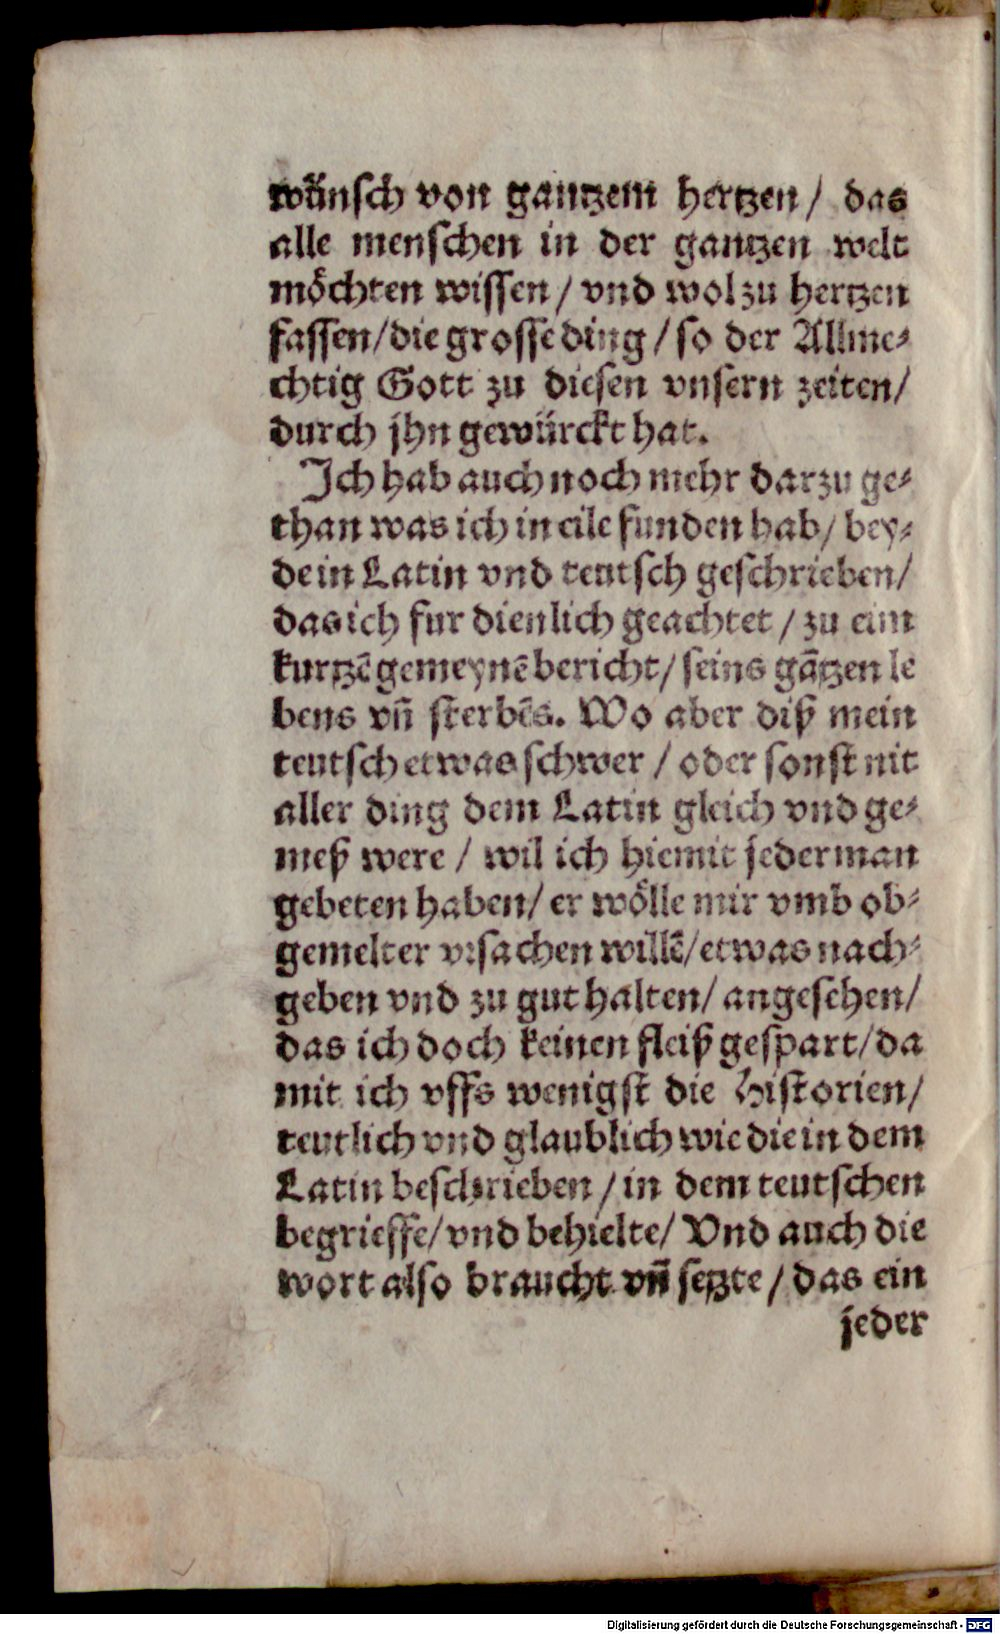 wünsch von gantzem hertzen/ das
alle menschen in der gantzen welt
möchten wissen/ vnd wol zu hertzen
fassen/die grosse ding/so der Allme-
chtig Gott zu diesen vnsern zeiten/
durch jhn gewürckt hat.
Ich hab auch noch mehr darzu ge-
than was ich in eile funden hab/ bey-
de in Latin vnd teutsch geschrieben/
das ich fur dienlich geachtet/ zu eim
kurtzē gemeynē bericht/ seins gātzen le
bens vñ sterbēs. Wo aber diß mein
teutsch etwas schwer/ oder sonst nit
aller ding dem Latin gleich vnd ge-
meß were/ wil ich hiemit jederman
gebeten haben/ er wölle mir vmb ob-
gemelter vrsachen willē/etwas nach-
geben vnd zu gut halten/ angesehen/
das ich doch keinen fleiß gespart/da
mit ich vffs wenigst die Historien/
teutlich vnd glaublich wie die in dem
Latin beschrieben/in dem teutschen
begrieffe/vnd behielte/ Vnd auch die
wort also braucht vñ setzte/ das ein
jeder
Digitalisierung gefördert durch die Deutsche Forschungsgemeinschaft - DFG